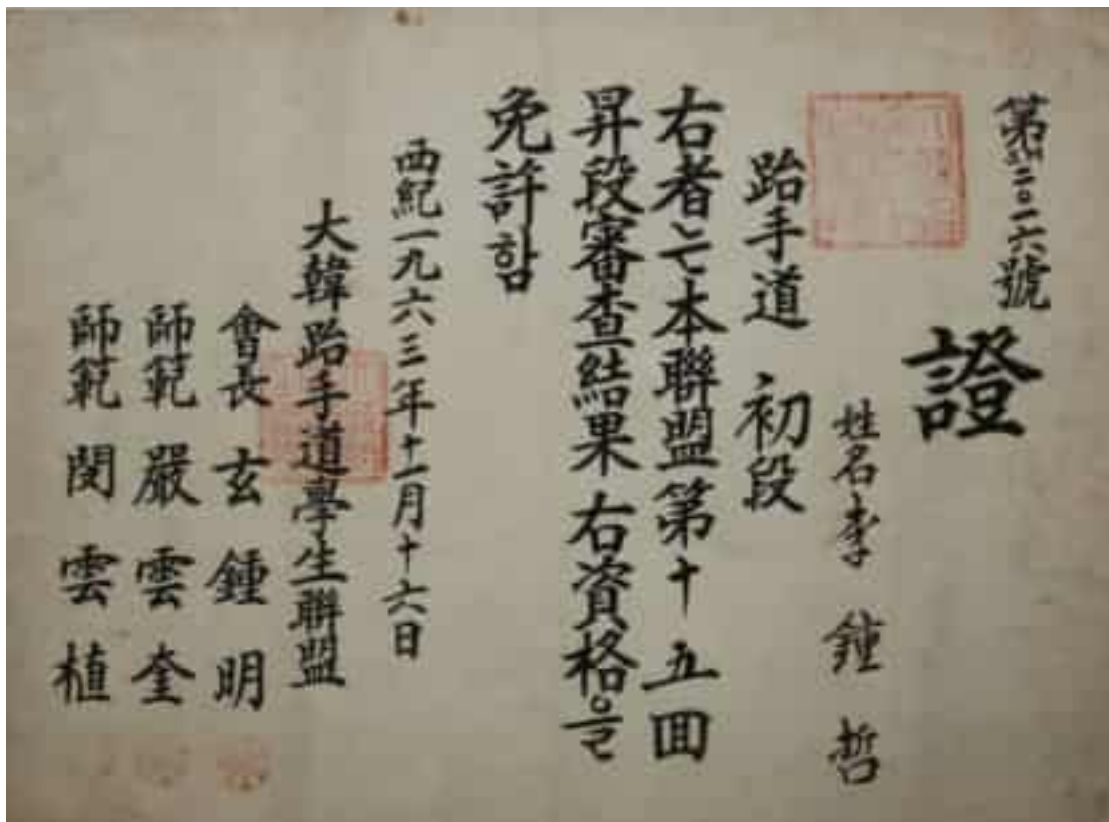 第二〇一六號
證
姓名 李鍾哲
跆手道 初段
右者는本聯盟第十五回
昇段審査結果右資格을
免許함
西紀一九六三年十一月十六日
大韓跆手道學生聯盟
會長 玄鍾明
師範 嚴雲奎
師範 閔雲植